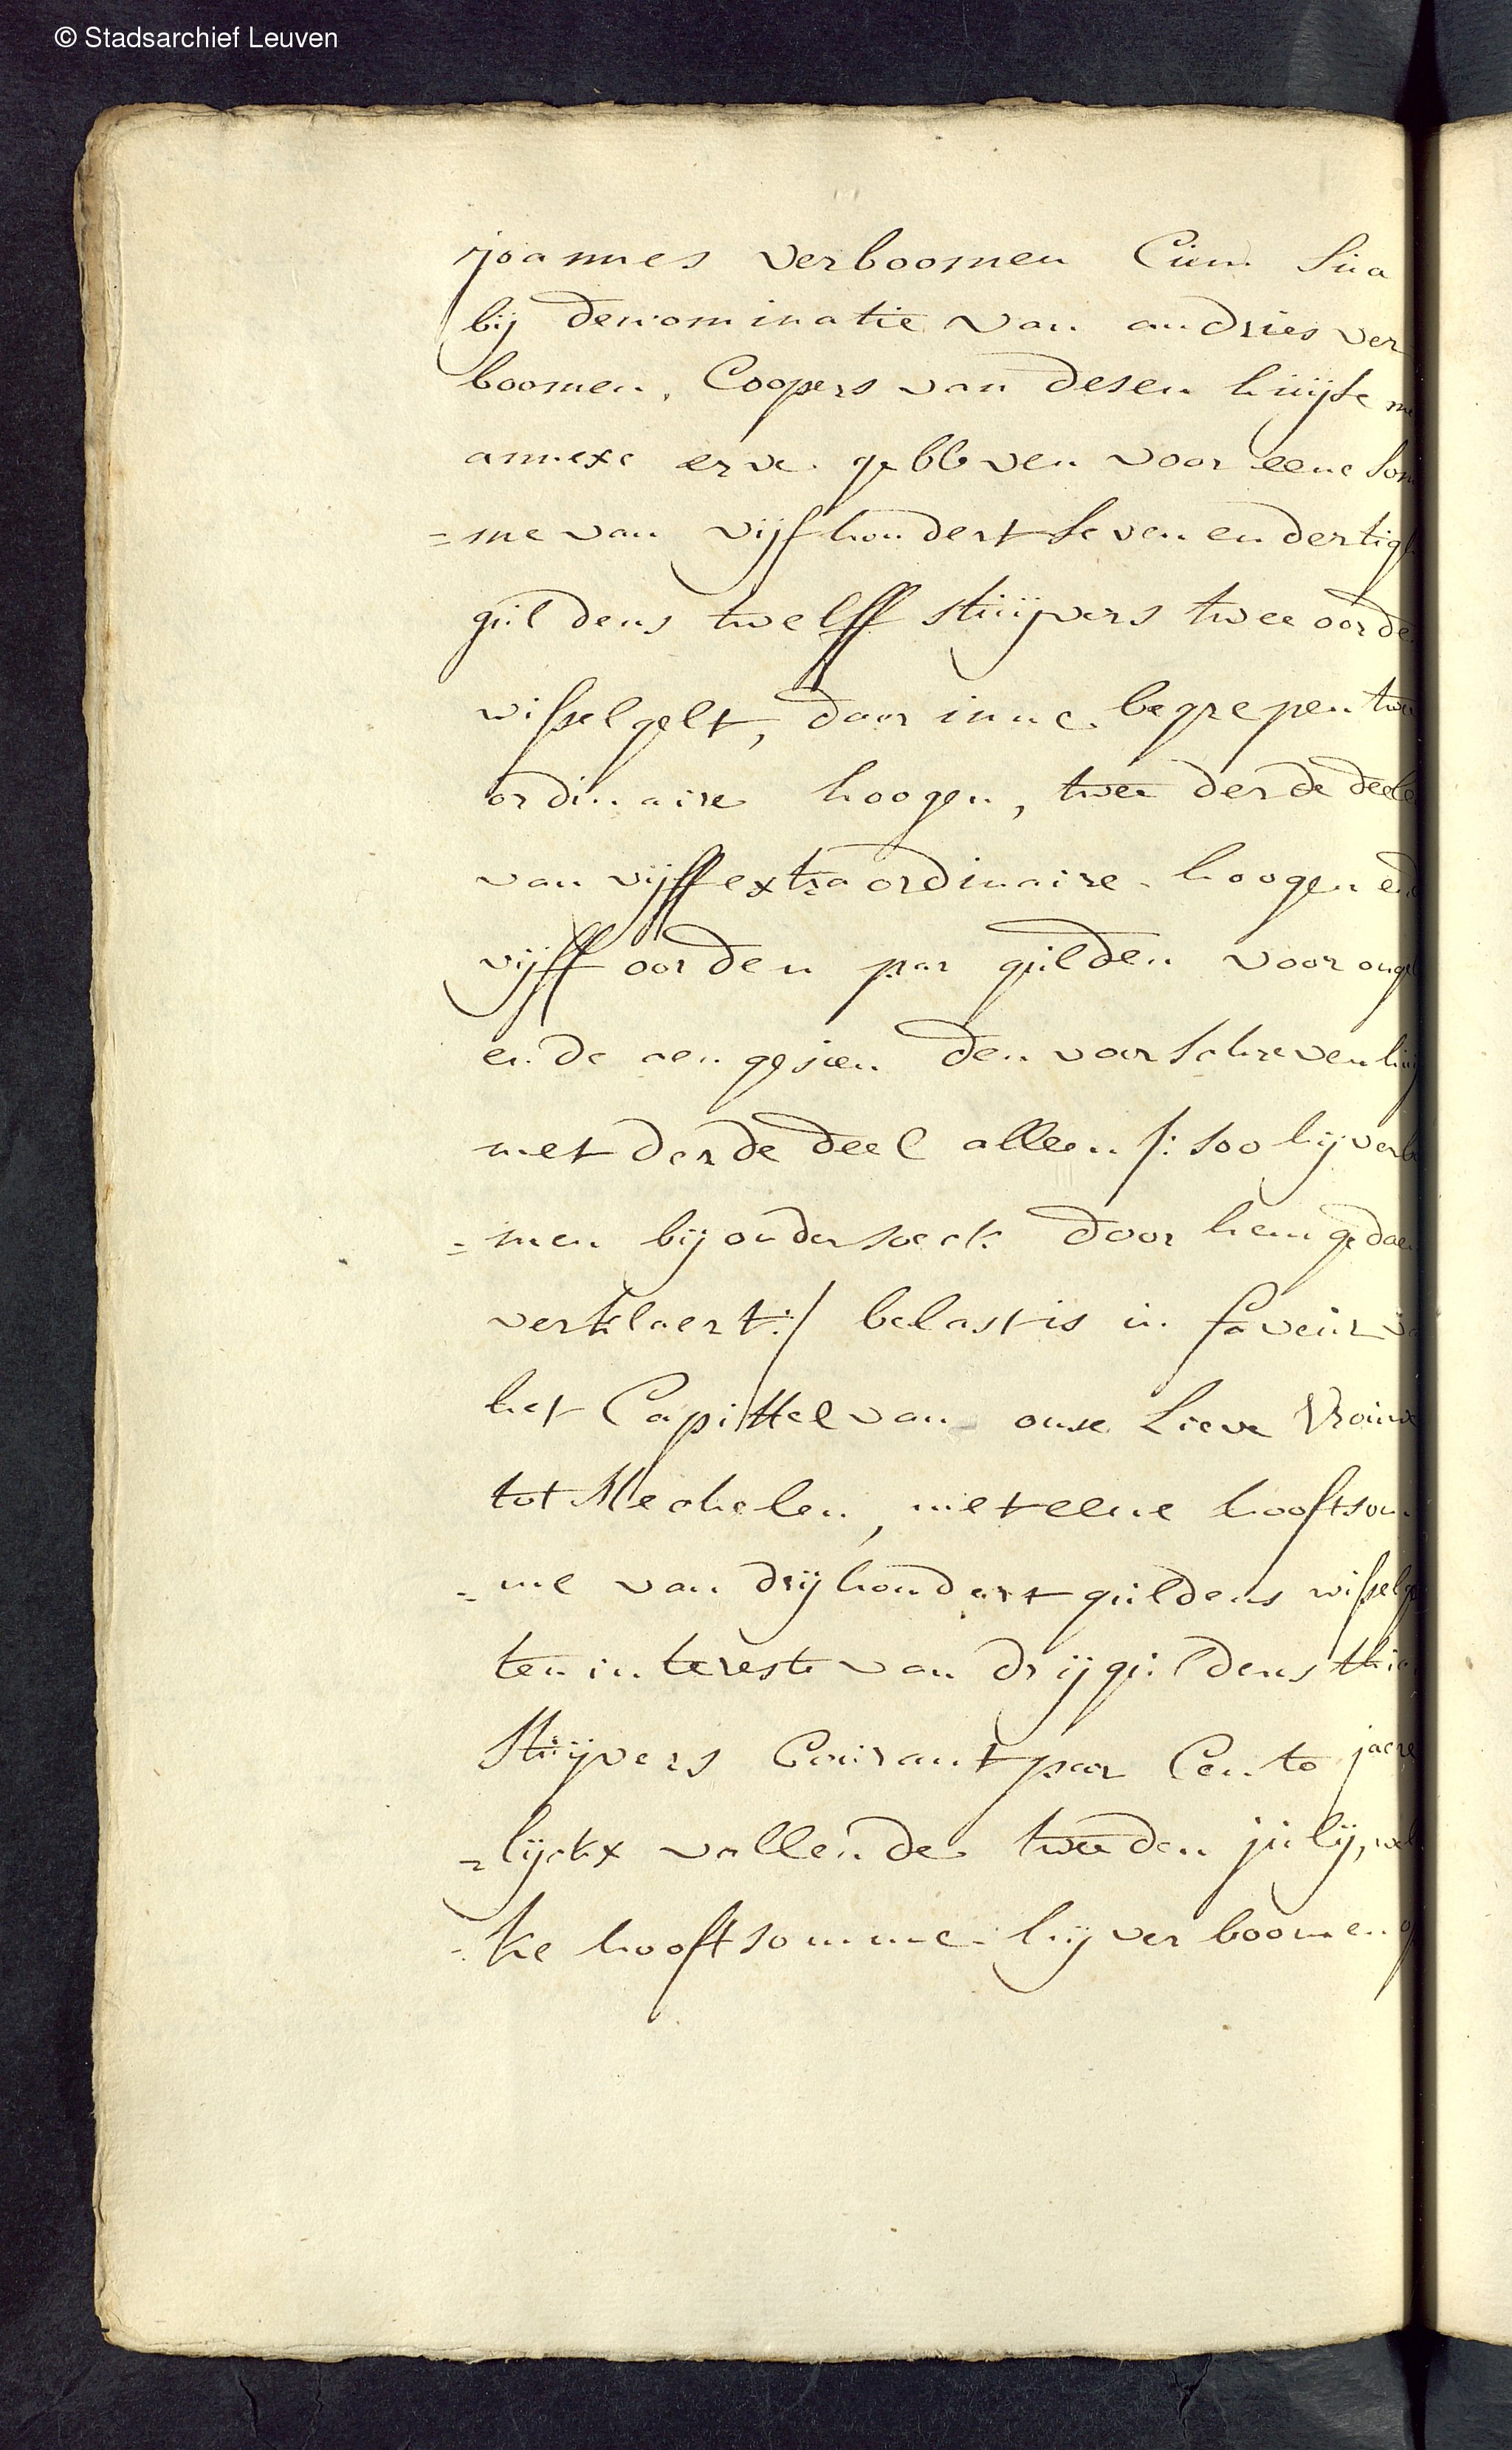 © Stadsarchief Leuven
joannes verboomen Cum Sua
bij denominatie van andries ver
boomen, Coopers van desen huijse
annexe erve gebleven voor eene Som
=me van vijfhondert Sevenendertigh
guldens twelff stuijvers twee oorden
wisselgelt, daer inne begrepen twee
ordinaire hoogen, twee derde deelen
van vijff extraordinaire hoogen ende
vijff oorden per gulden voor
ende aengesien den voorschreven
met derde deel alleen /: soo hij verboo
=men bij ondersoeck door hem gedaen
verklaert :/ belast is in faveur van
het Capittel van onse Lieve Vrouwe
tot Mechelen, met eene hooftsom
=me van drij hondert guldens wisselgelt
ten intereste van drij guldens thien
Stuijvers Courant per Cento jaere
=lijckx vallende tweeden julij, wel
=ke hooftsomme hij verboomen